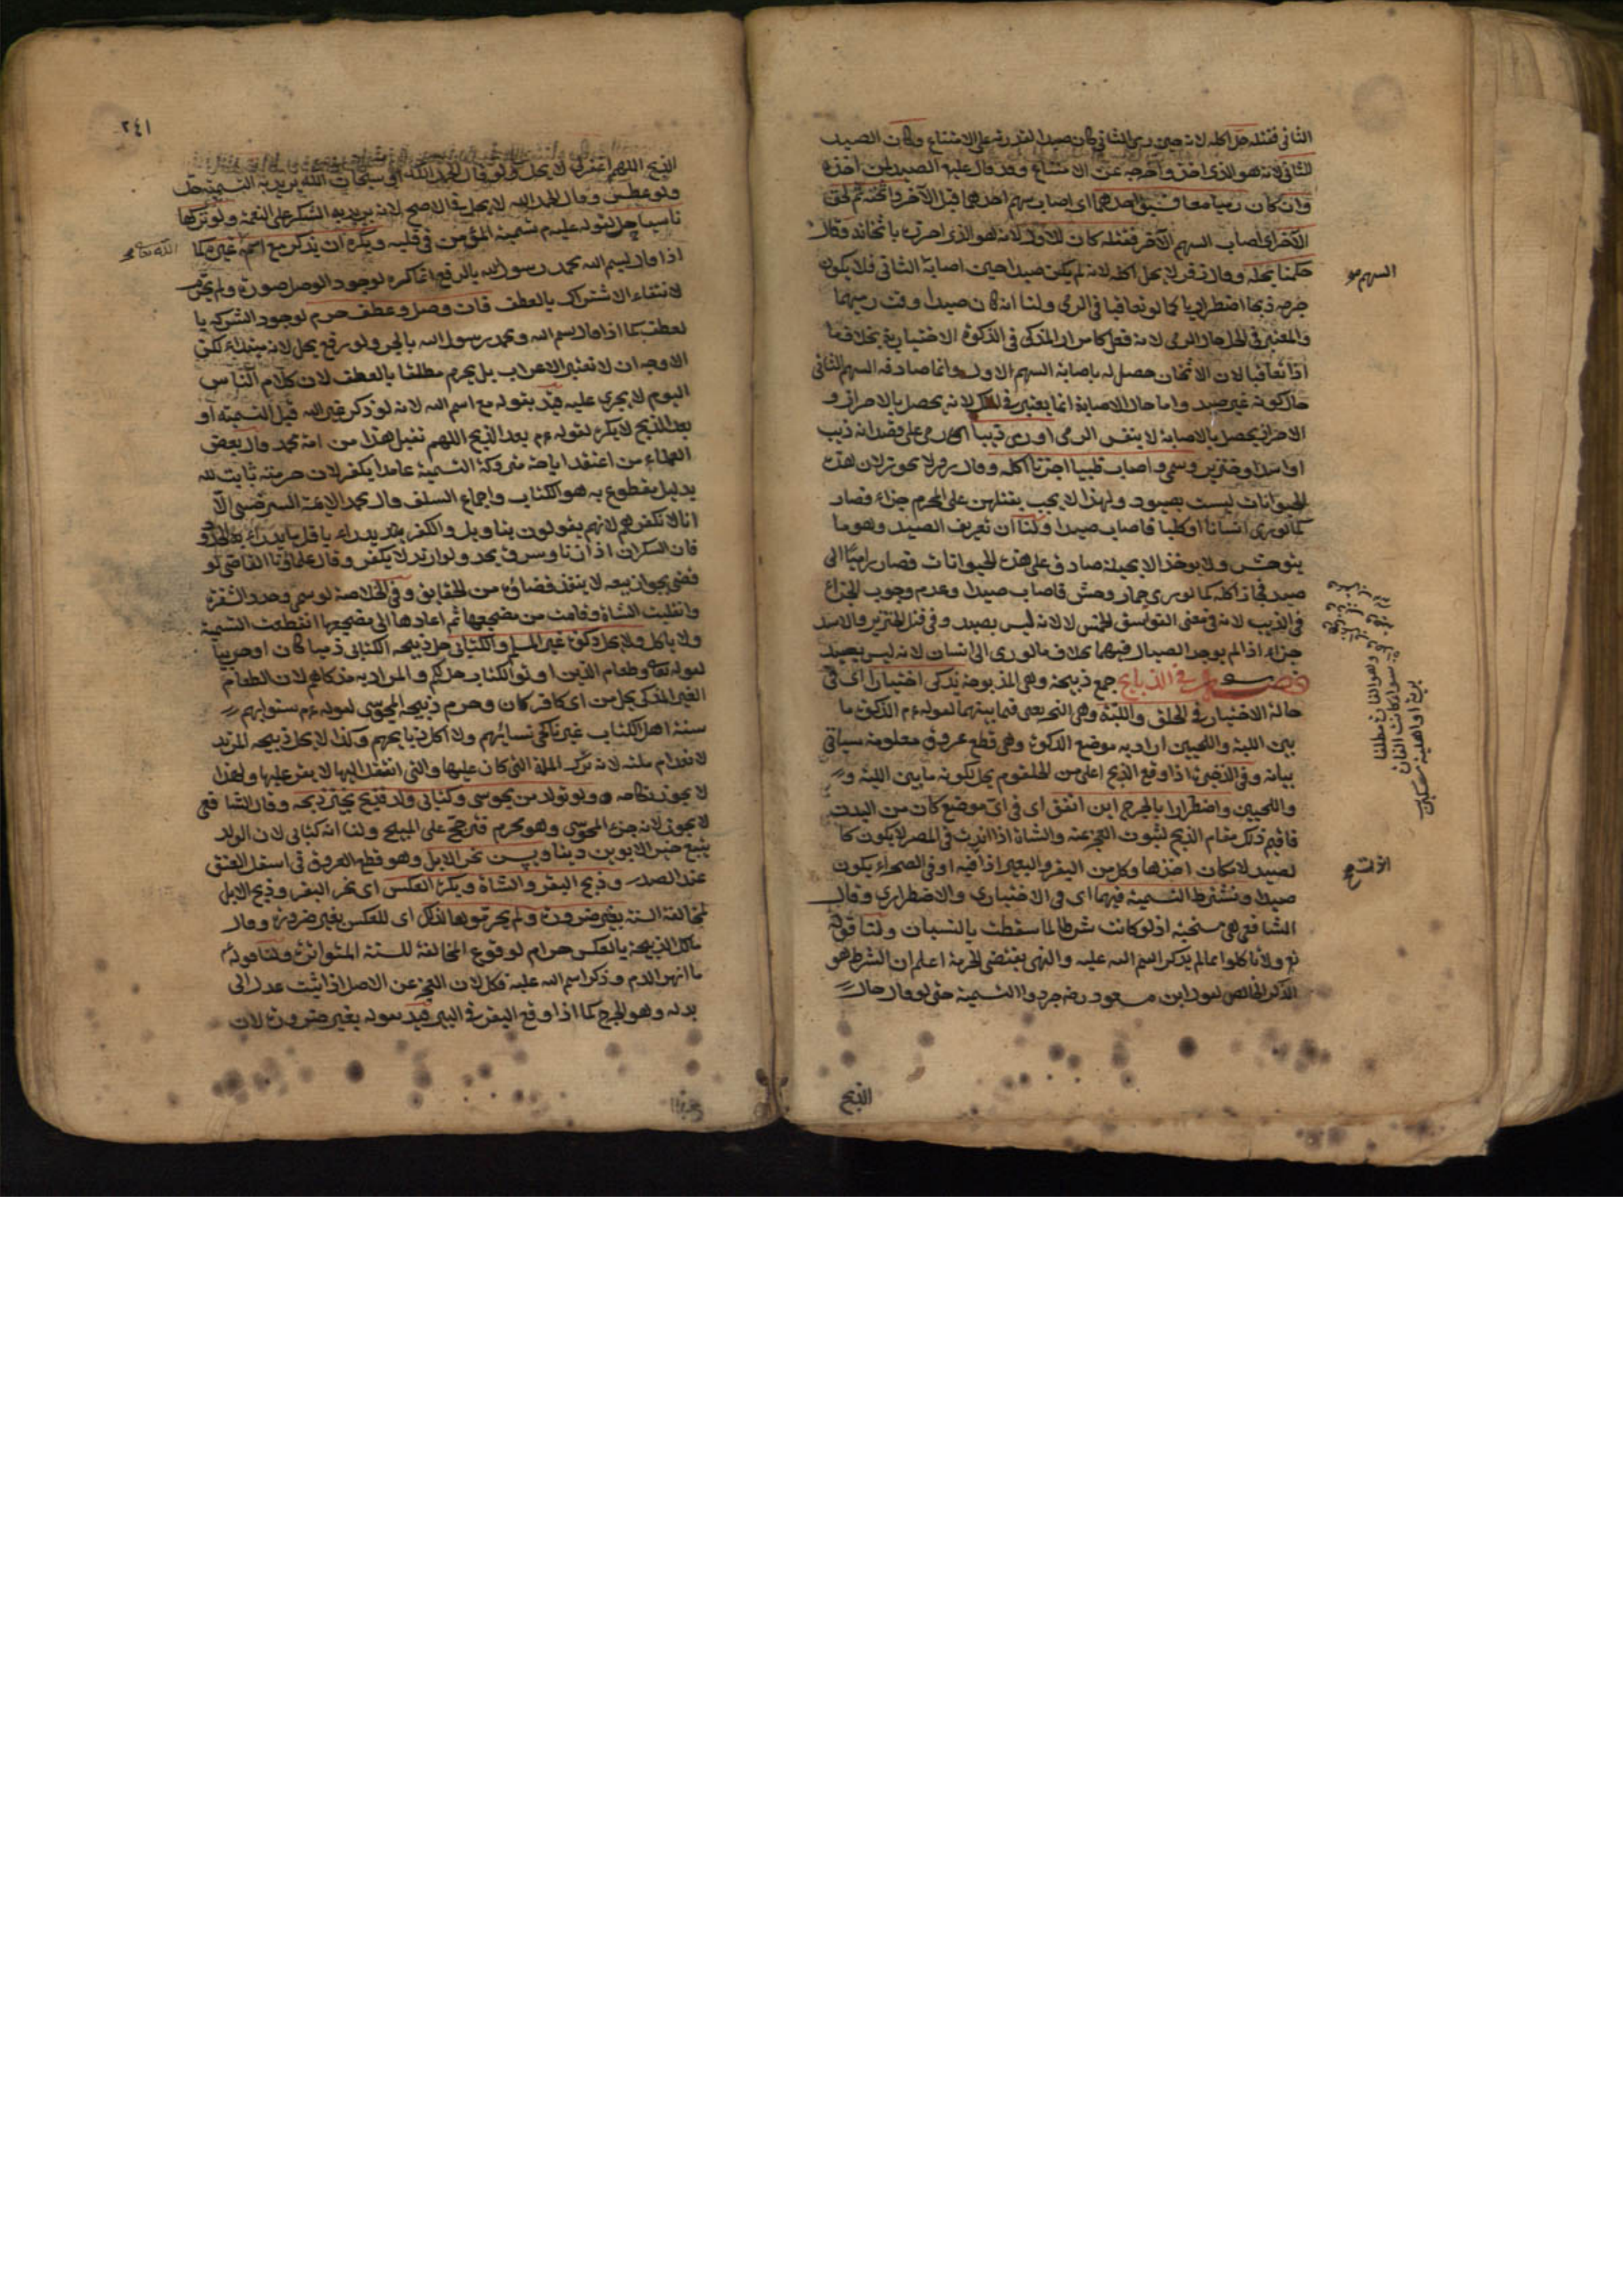 الثانى فقتله حل اكله لانه حين رمى الثانى كان صيدا لقدرته على الامتناع وكان الصيد
للثانى لانه هو الذى اخذه واخرجه عن الامتناع وقد قال عليه الصيد لمن اخذه
وان كان رميا معا فسبق احدهما اى اصاب سهم احدهما قبل الآخر واثخنه ثم لحق
الآخر اى اصاب السهم الآخر فقتله كان للاول لانه هو الذى احرزه باثخانه وقال
حكمنا بحله وقال زفر لا يحل اكله لانه لم يكن صيدا حين اصابة الثانى فلا يكون
جرحه ذبحا اضطراريا كما لو تعاقبا فى الرمى ولنا انه كان صيدا وقت رميهما
والمعتبر فى الحل حال الرمى لانه فعل كامرار المذكى فى الذكوة الاختيارية بخلاف ما
اذا تعاقبا لان الاثخان حصل له باصابة السهم الاول وانما صادفه السهم الثانى
حال كونه غير صيد واما حال الاصابة انما يعتبر فى الملك لانه يحصل بالاحراز و
الاحراز يحصل بالاصابة لا بنفس الرمى او رمى ذيبا اى رمى على قصد انه ذيب
او اسد او خنزير وسمى واصاب ظبيا اجزنا اكله وقال زفر لا يجوز لان هذه
الحيوانات ليست بصيود ولهذا لا يجب بقتلهن على المحرم جزاء فصار
كما لو رمى انسانا او كلبا فاصاب صيدا ولنا ان تعريف الصيد وهو ما
يتوحش ولا يوخذ الا بحيلة صادق على هذه الحيوانات فصار راميا الى
صيد فجاز اكله كما لو رمى حمار وحش فاصاب صيدا وعدم وجوب الجزاء
فى الذيب لانه فى معنى الفواسق الخمس لا لانه ليس بصيد وفى قتل الخنزير والاسد
جزاء اذا لم يوجد الصيال فيهما بخلاف ما لو رمى الى انسان لانه ليس بصيد
فصل فى الذبايح جمع ذبيحة وهى المذبوحة يذكى اختيارا اى فى
حالة الاختيار فى الحلق واللبة وهى النحر يعنى فيما بينهما لقوله عم الذكوة ما
بين اللبة واللحيين اراد به موضع الذكوة وهى قطع عروق معلومة سياتى
بيانه وفى الذخيرة اذا وقع الذبح اعلى من الحلقوم يحل لكونه ما بين اللبة و
واللحيين واضطرارا بالجرح اين اتفق اى فى اى موضع كان من البدن
فاقيم ذلك مقام الذبح لثبوت العجز عنه والشاة اذا ندت فى المصر لا يكون كا
لصيد لامكان اخذها وكل من البقر والبعير اذا فيه او فى الصحراء يكون
صيدا ويشترط التسمية فيهما اى فى الاختيارى والاضطرارى وقال
الشافعى هى مستحبة اذ لو كانت شرطا لما سقطت بالنسيان ولنا قوله
تع ولا تاكلوا مما لم يذكر اسم الله عليه والنهى يقتضى الحرمة اعلم ان الشرط هو
الذكر الخالص لقول ابن مسعود رضه جردوا التسمية حتى لو قال حال
الذبح
السهم
وهو القارن مطلقا
٢٤١
الذبح اللهم اغفر لى لا يحل ولو قال الحمد لله او سبحان الله يريد به التسمية حل
ولو عطس وقال الحمد لله لا يحل فى الاصح لانه يريد به الشكر على النعمة ولو تركها
ناسيا حل لقوله عليه م تسمية المؤمن فى قلبه ويكره ان يذكر مع اسمه غيره كما
الله تعالى
اذا قال بسم الله محمد رسول الله بالرفع انما كره لوجود الوصل صورة ولم يحرم
لانتفاء الاشتراك بالعطف فان وصل وعطف حرم لوجود الشركة با
لعطف كما اذا قال بسم الله ومحمد رسول الله بالجر ولو رفع يحل لانه مبتداء لكن
الاوجه ان لا تعتبر الاعراب بل يحرم مطلقا بالعطف لان كلام الناس
اليوم لا يجرى عليه قيد بقوله مع اسم الله لانه لو ذكر غير الله قبل التسمية او
بعد الذبح لا يكره لقوله عم بعد الذبح اللهم تقبل هذا من امة محمد وقال بعض
العلماء من اعتقد اباحة متروكة التسمية عامدا يكفر لان حرمته ثابت لله
بدليل مقطوع به هو الكتاب واجماع السلف وقال محمد الائمة السرخسى الا
انا لا نكفرهم لانهم يقولون بتاويل والكفر
فان السكران اذا زنا وسرق يحد ولو ارتد لا يكفر وقال علماؤنا القاضى لو
قضى بجواز بيعه لا ينفذ قضاؤه من الحقايق وفى الخلاصة لو سمى وحدد الشفرة
وانقلبت الشاة وقامت من مضجعها ثم اعادها الى مضجعها انقطعت التسمية
ولا ياكل ولا يحل ذكوة غير المسلم والكتابى حل ذبيحة الكتابى ذميا كان او حربيا
لقوله تعالى وطعام الذين اوتوا الكتاب حل لكم والمراد به مذكاهم لان الطعام
الغير المذكى يحل من اى كافر كان وحرم ذبيحة المجوسى لقوله عم سنوا بهم
سنة اهل الكتاب غير ناكحى نسائهم ولا آكلى ذبايحهم وكذا لا يحل ذبيحة المرتد
لانعدام ملته لانه ترك الملة التى كان عليها والتى انتقل اليها لا يقر عليها ولهذا
لا يجوز نكاحه ولو تولد من مجوسى وكتابى ولد فذبح نجيز ذبحه وقال الشافعى
لا يجوز لانه جزء المجوسى وهو محرم فترجح على المبيح ولنا انه كتابى لان الولد
يتبع خير الابوين دينا ويسن نحر الابل وهو قطع العروق فى اسفل العنق
عند الصدر وذبح البقر والشاة ويكره العكس اى نحر البقر وذبح الابل
لمخالفة السنة بغير ضرورة ولم يحرموها لذلك اى للعكس بغير ضرورة وقال
مالك الذبيحة بالعكس حرام لوقوع المخالفة للسنة المتواترة ولنا قوله عم
ما انهر الدم وذكر اسم الله عليه فكل لان العجز عن الاصل اذا ثبت عدل الى
بدله وهو الجرح كما اذا وقع البقر فى البير قيد بقوله بغير ضرورة لان